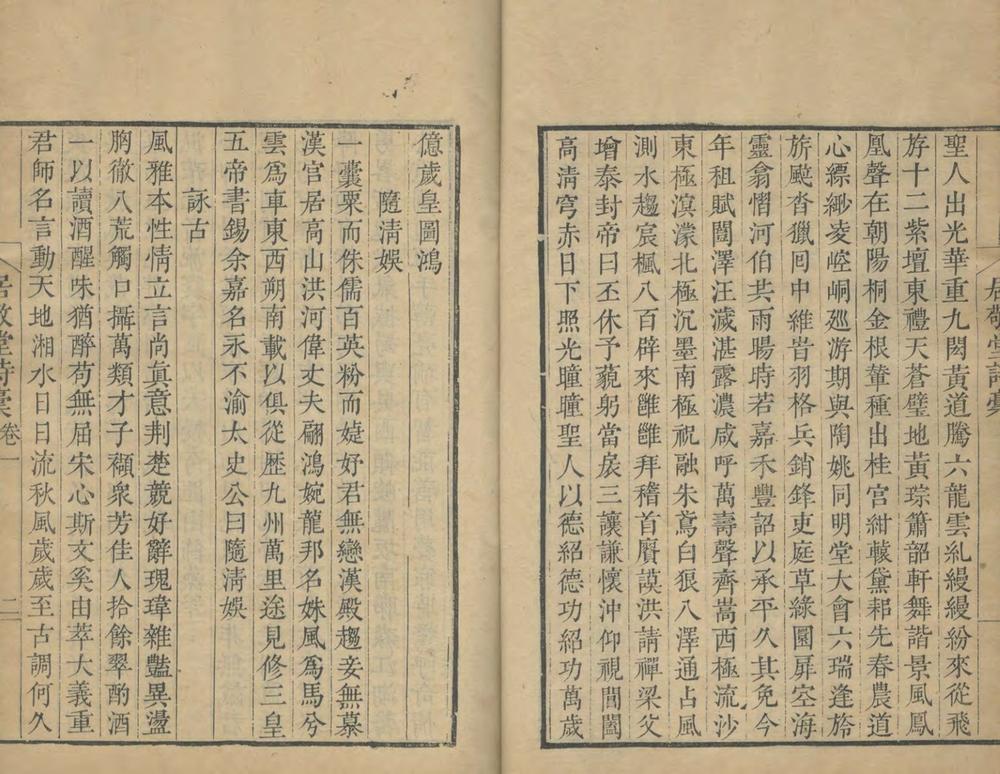 居敬堂詩囊
聖人出光華重九閎黃道騰六龍雲糺縵縵紛來從飛
斿十二紫壇東禮天蒼璧地黃琮簫韶軒舞諧景風鳳
凰聲在朝陽桐金根葦種出桂宮紺轅黛耜先春農道
心縹緲凌崆峒廵游期與陶姚同明堂大會六瑞逢旂
旂颭沓獵囘中維旹羽格兵銷鋒吏庭草綠圜屛空海
靈翕慴河伯共雨暘時若嘉禾豐詔以承平久其免今
年租賦闓澤汪濊湛露濃咸呼萬壽聲齊嵩西極流沙
東極溟濛北極沉墨南極祝融朱鳶白狼八澤通占風
測水趨宸楓八百辟來雝雝拜稽首賡謨洪請禪梁父
增泰封帝曰丕休予藐躬當扆三讓謙懷沖仰視閶闔
高淸穹赤日下照光曈曈聖人以德紹德功紹功萬歲
億歲皇圖鴻
隨淸娛
一囊粟而侏儒百英粉而婕妤君無戀漢殿趨妾無慕
漢官居高山洪河偉丈夫翩鴻婉龍邦名姝風爲馬兮
雲爲車東西朔南載以俱從歷九州萬里途見修三皇
五帝書錫余嘉名永不渝太史公曰隨淸娛
詠古
風雅本性情立言尚眞意荆楚競好辭瑰瑋雜豔異盪
胸徹八荒觸口攝萬類才子纈衆芳佳人拾餘翠酌酒
一以讀酒醒味猶醉苟無屈宋心斯文奚由萃大義重
君師名言動天地湘水日日流秋風歲歲至古調何久
居敬堂詩囊 卷一 二